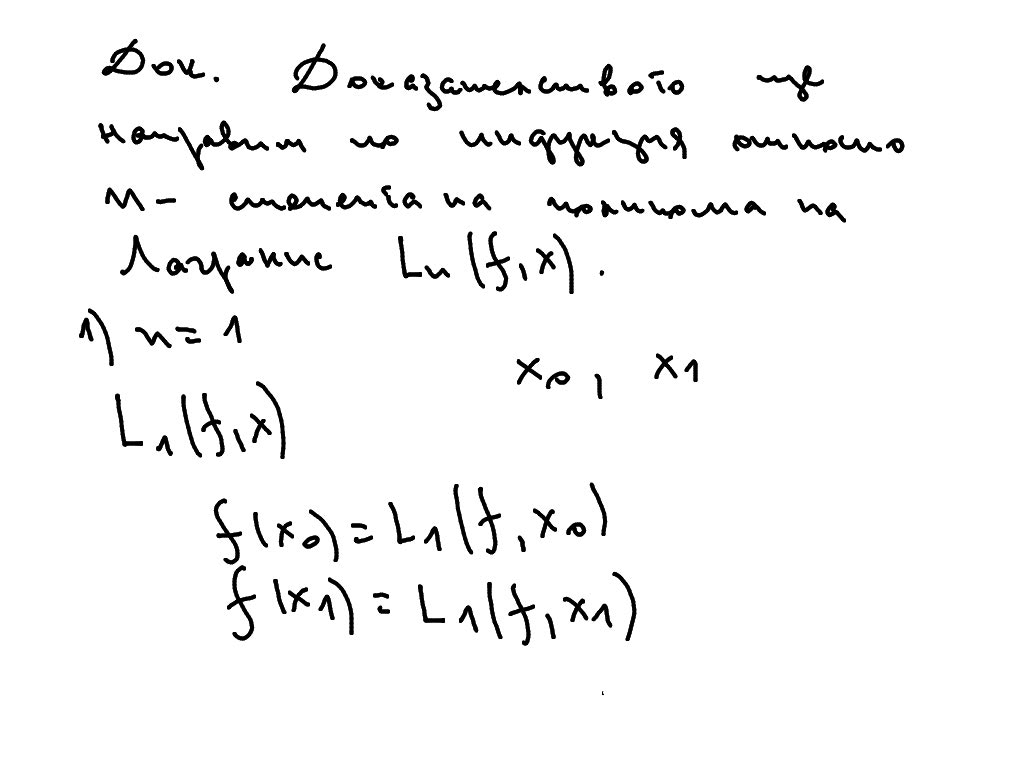 Док. Доказателството ще
направим по индукция относно
n - степента на полинома на
Лагранж Ln(f,x).
1) n = 1
x0, x1
L1(f,x)
f(x0) = L1(f,x0)
f(x1) = L1(f,x1)